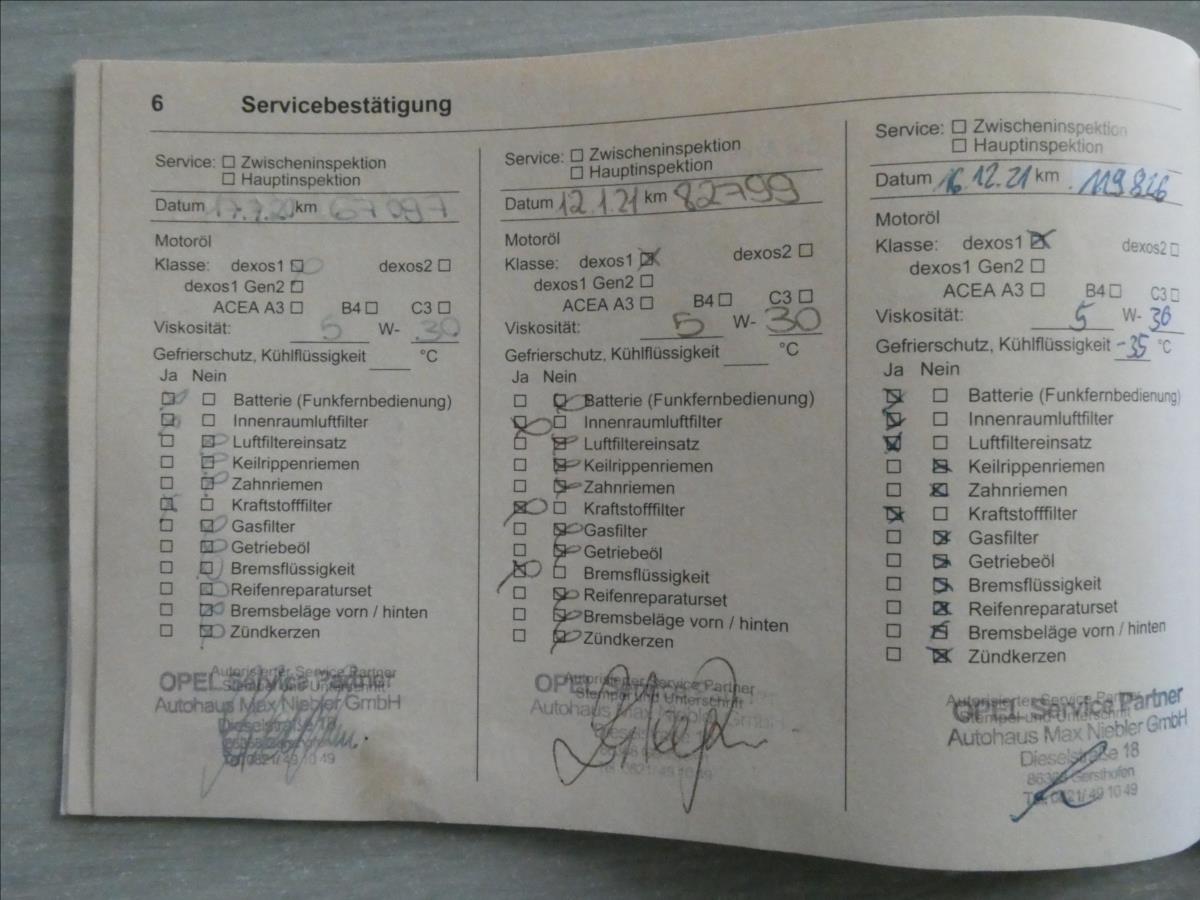 6 Servicebestätigung
Service: ☐ Zwischeninspektion
☐ Hauptinspektion
Datum 17.7.20 km 67097
Motoröl
Klasse: dexos1 ☒ dexos2 ☐
dexos1 Gen2 ☐
ACEA A3 ☐ B4 ☐ C3 ☐
Viskosität: 5 W- 30
Gefrierschutz, Kühlflüssigkeit °C
Ja Nein
☒ ☐ Batterie (Funkfernbedienung)
☒ ☐ Innenraumluftfilter
☐ ☒ Luftfiltereinsatz
☐ ☒ Keilrippenriemen
☐ ☒ Zahnriemen
☒ ☐ Kraftstofffilter
☐ ☒ Gasfilter
☐ ☒ Getriebeöl
☐ ☒ Bremsflüssigkeit
☐ ☒ Reifenreparaturset
☐ ☒ Bremsbeläge vorn / hinten
☐ ☒ Zündkerzen
Autorisierter Service Partner
OPEL Service Partner
Stempel und Unterschrift
Autohaus Max Niebler GmbH
Dieselstraße 18
Tel. 0821/ 49 10 49
Service: ☐ Zwischeninspektion
☐ Hauptinspektion
Datum 12.1.21 km 82799
Motoröl
Klasse: dexos1 ☒ dexos2 ☐
dexos1 Gen2 ☐
ACEA A3 ☐ B4 ☐ C3 ☐
Viskosität: 5 W- 30
Gefrierschutz, Kühlflüssigkeit °C
Ja Nein
☐ ☒ Batterie (Funkfernbedienung)
☒ ☐ Innenraumluftfilter
☐ ☒ Luftfiltereinsatz
☐ ☒ Keilrippenriemen
☐ ☒ Zahnriemen
☒ ☐ Kraftstofffilter
☐ ☒ Gasfilter
☐ ☒ Getriebeöl
☒ ☐ Bremsflüssigkeit
☐ ☒ Reifenreparaturset
☐ ☒ Bremsbeläge vorn / hinten
☐ ☒ Zündkerzen
Autorisierter Service Partner
OPEL Service
Stempel und Unterschrift
Autohaus Max Niebler GmbH
Tel. 0821/ 49 10 49
Service: ☐ Zwischeninspektion
☐ Hauptinspektion
Datum 16.12.21 km 119826
Motoröl
Klasse: dexos1 ☒ dexos2 ☐
dexos1 Gen2 ☐
ACEA A3 ☐ B4 ☐ C3 ☐
Viskosität: 5 W- 30
Gefrierschutz, Kühlflüssigkeit -35 °C
Ja Nein
☒ ☐ Batterie (Funkfernbedienung)
☒ ☐ Innenraumluftfilter
☒ ☐ Luftfiltereinsatz
☐ ☒ Keilrippenriemen
☐ ☒ Zahnriemen
☒ ☐ Kraftstofffilter
☐ ☒ Gasfilter
☐ ☒ Getriebeöl
☐ ☒ Bremsflüssigkeit
☐ ☒ Reifenreparaturset
☐ ☒ Bremsbeläge vorn / hinten
☐ ☒ Zündkerzen
Autorisierter Service Partner
OPEL Service Partner
Stempel und Unterschrift
Autohaus Max Niebler GmbH
Dieselstraße 18
Gersthofen
Tel. 0821/ 49 10 49